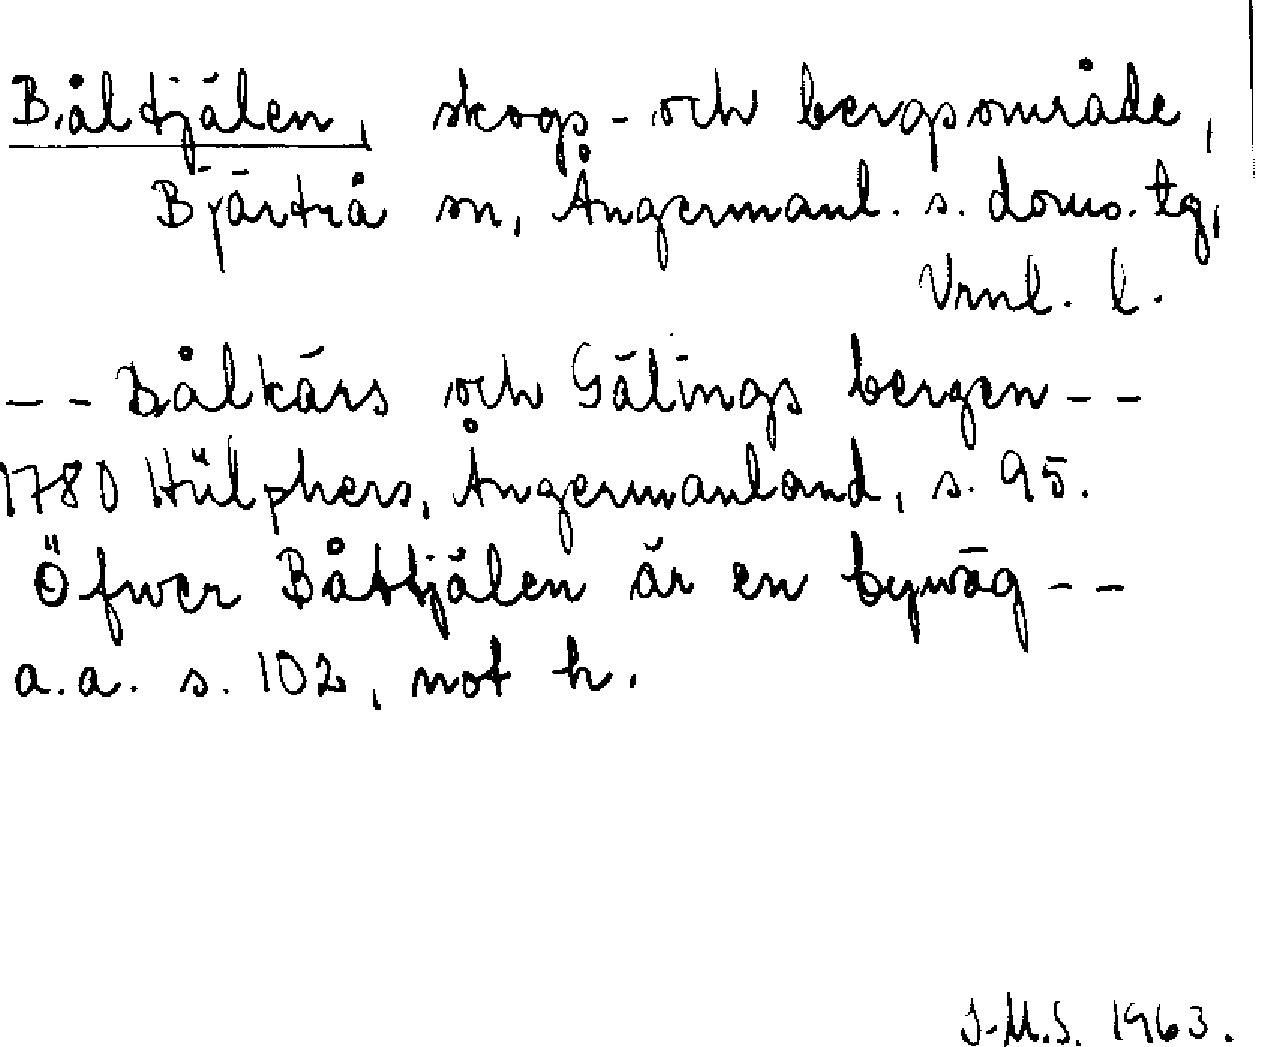 Båltjälen, skogs- och bergsområde,
Bjärtrå sn, Ångermanl. s. doms. tg,
Vrnl. l.
-- Bålkärs och Gälings bergen --
1780 Hülphers, Ångermanland, s. 95.
Öfwer Båttjälen är en bywäg --
a.a. s. 102, not h.
J.M.S. 1963.